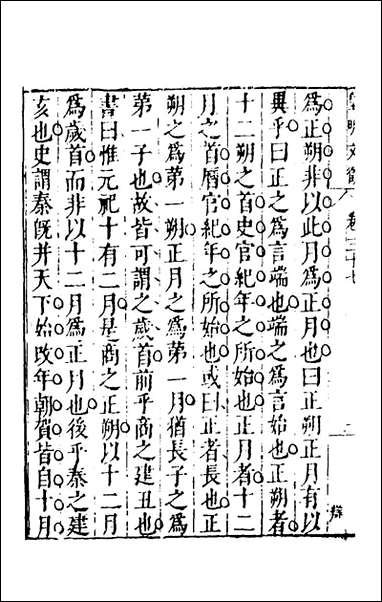 皇明文衡 卷三十七
二
爲正朔非以此月爲正月也曰正朔正月有以
異乎曰正之爲言端也端之爲言始也正朔者
十二朔之首史官紀年之所始也正月者十二
月之首曆官紀年之所始也或曰正者長也正
朔之爲第一朔正月之爲第一月猶長子之爲
第一子也故皆可謂之歲首前乎商之建丑也
書曰惟元祀十有二月是商之正朔以十二月
爲歲首而非以十二月爲正月也後乎秦之建
亥也史謂秦旣并天下始改年朝賀皆自十月